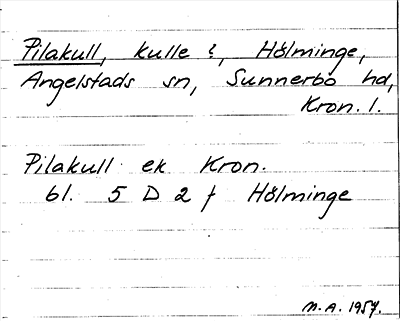 Pilakull, kulle ?, Hölminge,
Angelstads sn, Sunnerbo hd,
Kron. l.
Pilakull ek Kron.
bl. 5 D 2 f Hölminge
M.A. 1957.